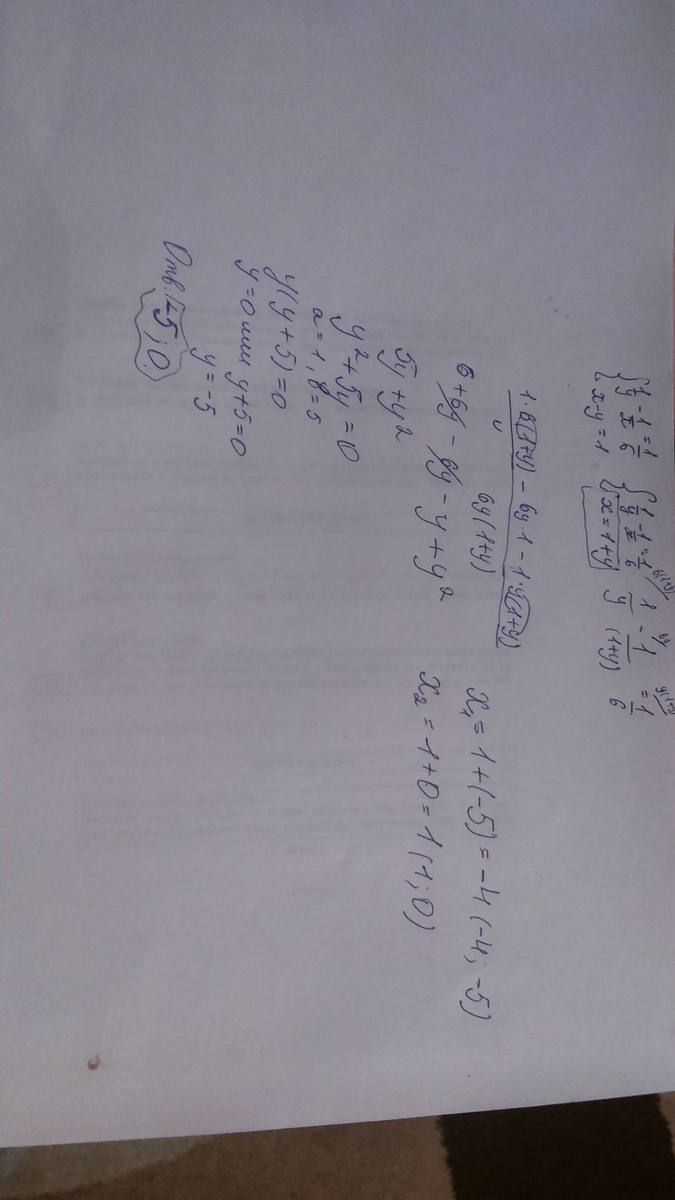 {1/y - 1/x = 1/6 {1/y - 1/x = 1/6 6(1+y)/ 1/y - 6y/ 1/(1+y) = y(1+y)/ 1/6
{x-y=1 {x=1+y
1·6(1+y) - 6y·1 - 1·y(1+y)
6y(1+y)
6+6y - 6y - y + y²
5y + y²
y² + 5y = 0
a = 1, b = 5
y(y+5) = 0
y = 0 или y+5=0
y = -5
Отв: -5; 0.
x₁ = 1+(-5) = -4 (-4; -5)
x₂ = 1+0 = 1 (1; 0)